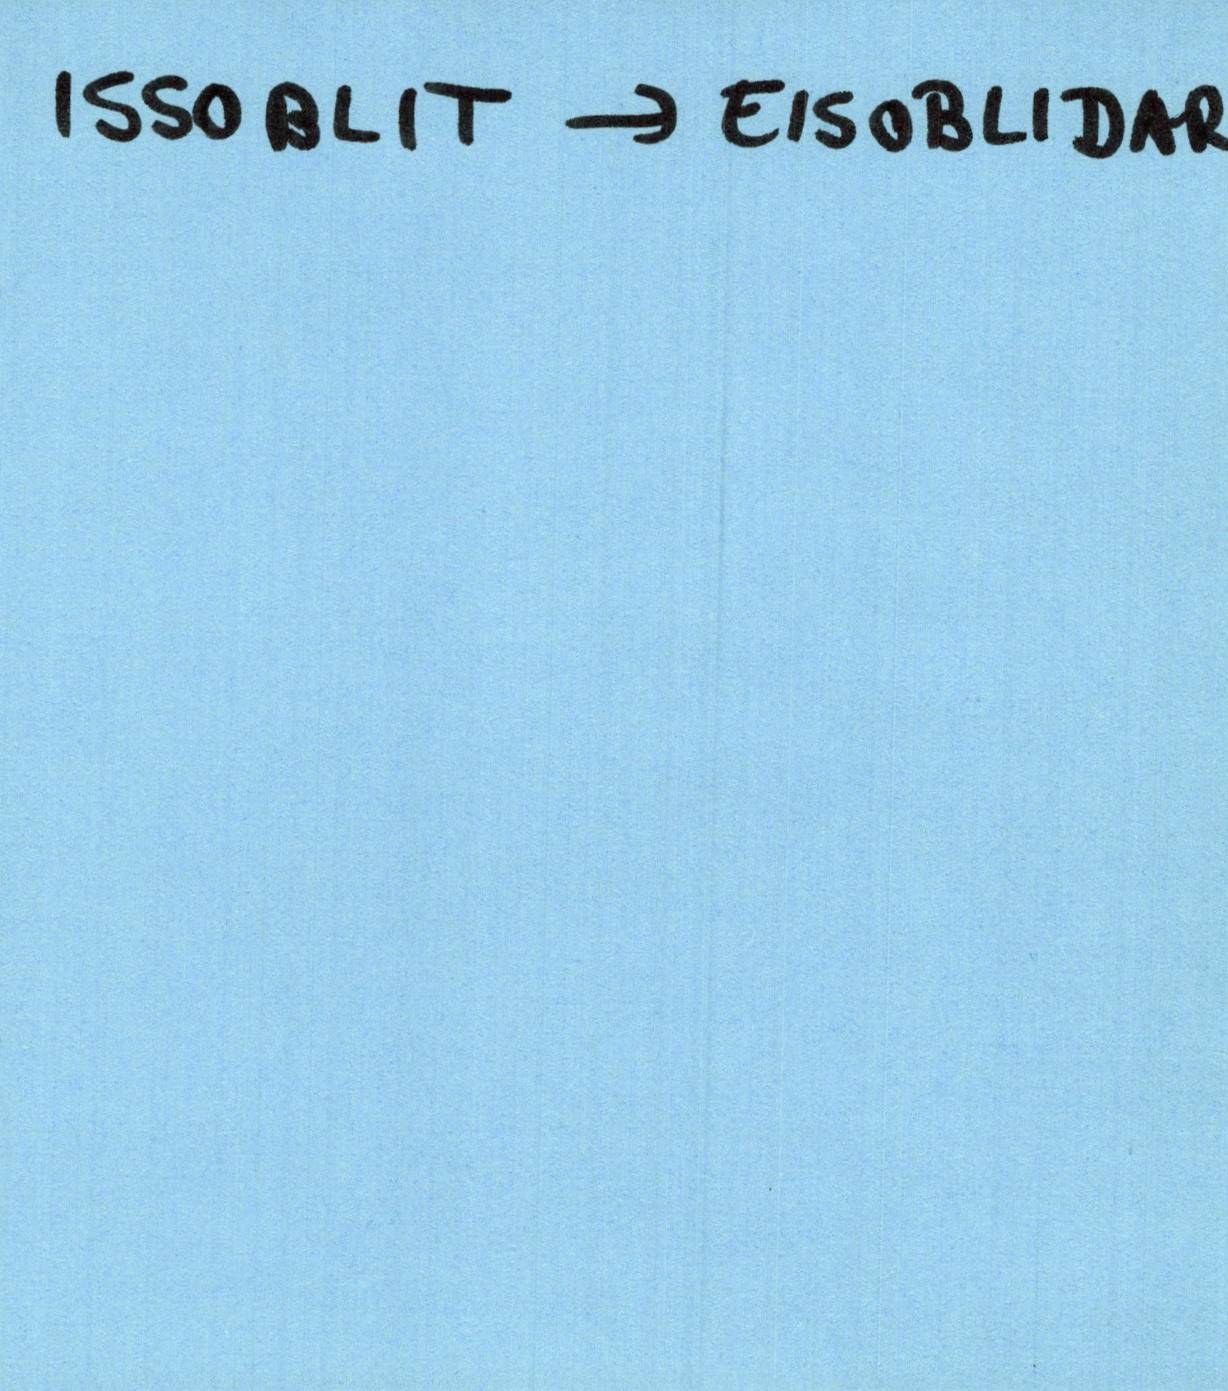 ISSOBLIT → EISOBLIDAR